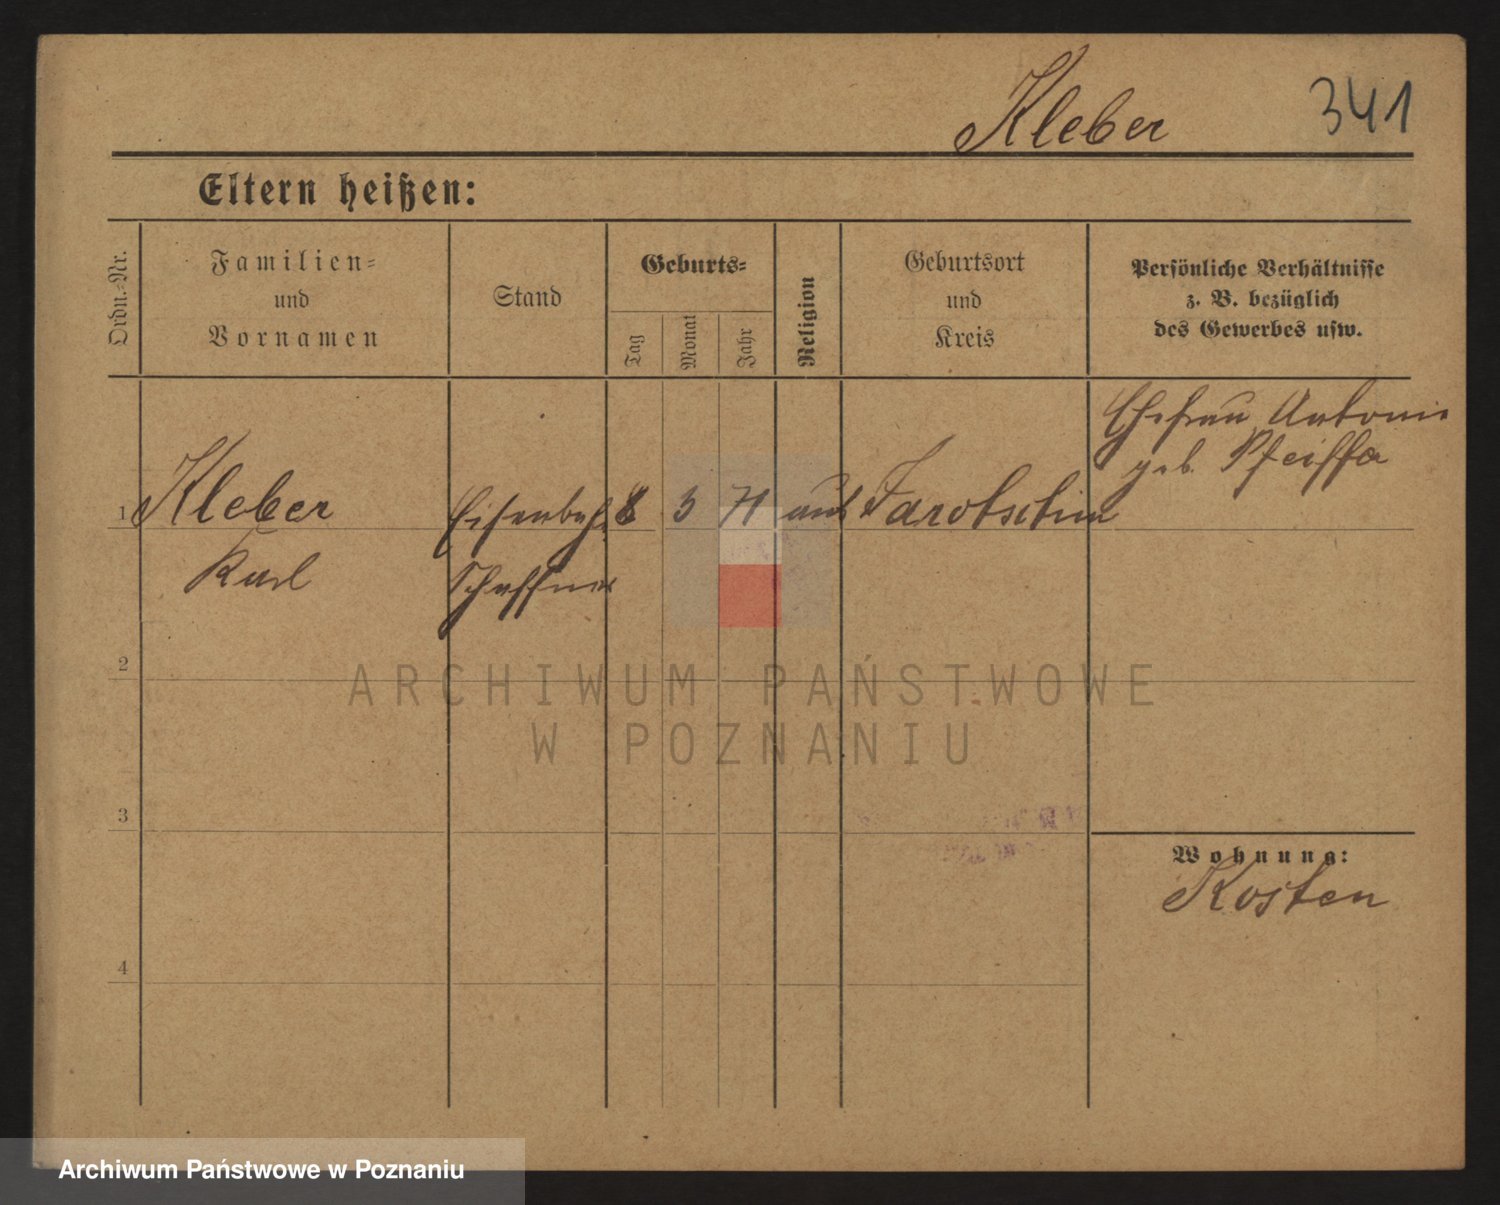 Kleber 341
Eltern heißen:
Ordn.-Nr.
Familien-
und
Vornamen
Stand
Geburts-
Tag
Monat
Jahr
Religion
Geburtsort
und
Kreis
Persönliche Verhältnisse
z. B. bezüglich
des Gewerbes usw.
Ehefrau Antonie
geb. Pfeiffer
1 Kleber Eisenbah 8 3 71 Jarotschin
Karl Schaffner
2
3
4
Wohnung:
Kosten
ARCHIWUM PAŃSTWOWE
W POZNANIU
Archiwum Państwowe w Poznaniu